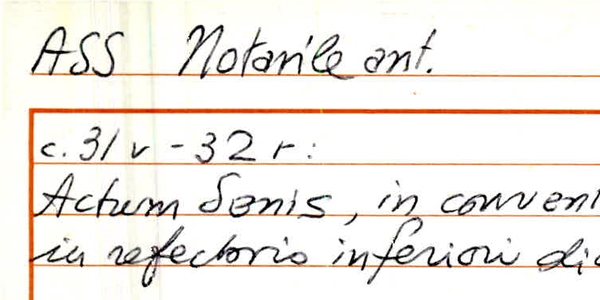 ASS Notarile ant.
c. 31v - 32r:
Actum Senis, in conven
in refectorio inferiori di